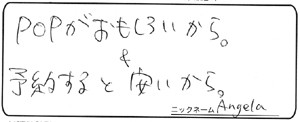 POPがおもしろいから。
&
予約すると安いから。
ニックネーム Angela